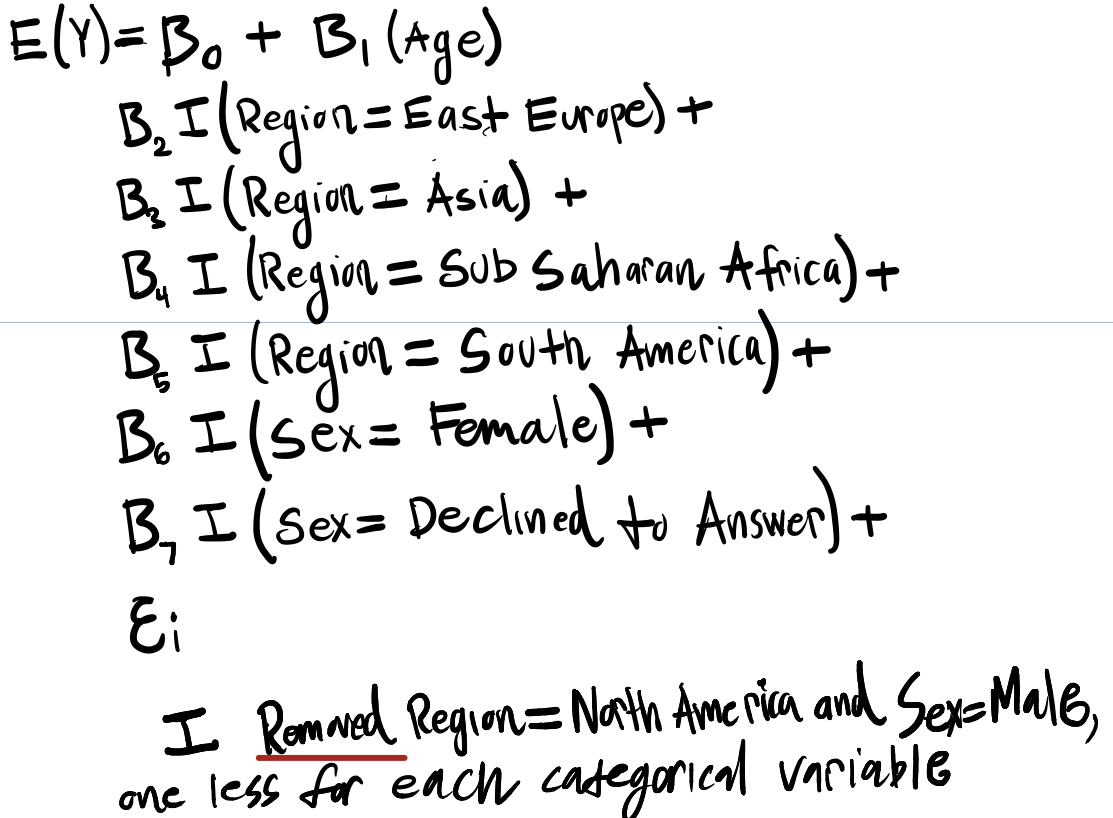 E(Y)= B₀ + B₁ (Age)
B₂ I(Region = East Europe) +
B₃ I(Region = Asia) +
B₄ I (Region = Sub Saharan Africa) +
B₅ I (Region = South America) +
B₆ I (Sex = Female) +
B₇ I (Sex = Declined to Answer) +
Ɛi
I Removed Region = North America and Sex=Male,
one less for each categorical variable